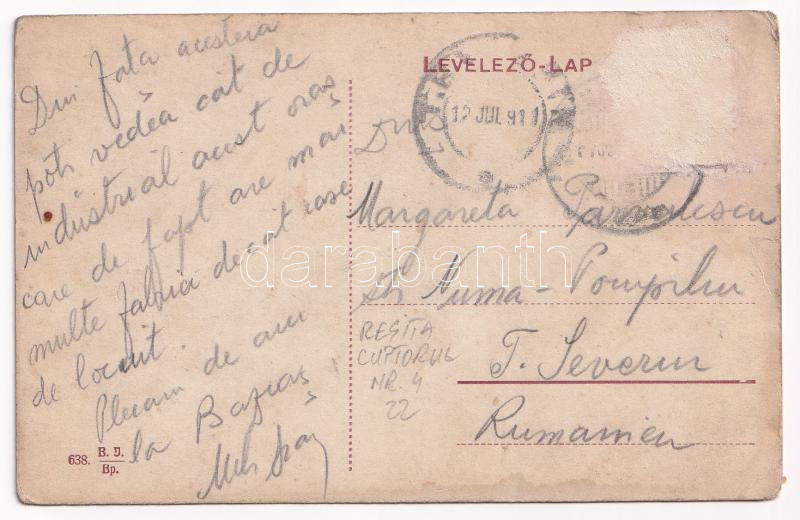 Din fata acesteia
poți vedea cât de
industrial acest oraș
care de fapt are mai
multe fabrici decât case
de locuit.
Plecăm de aici
la Baziaș
LEVELEZŐ-LAP
12 JUL 911
Dnei
Margareta Pârvulescu
str Numa-Pompiliu
T. Severin
Rumanien
RESITA
CUPTORUL
NR. 4
22
638. B. J.
Bp.
darabanth